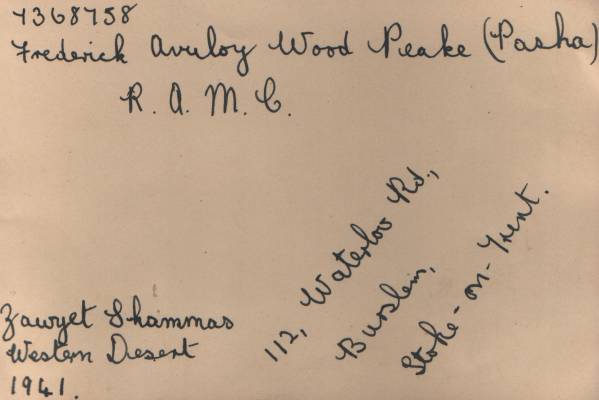 7368758
Frederick Avuloy Wood Peake (Pasha)
R. A. M. C.
112, Waterloo Rd.,
Burslem,
Stoke-on-Trent.
Zawyet Shammas
Western Desert
1941.